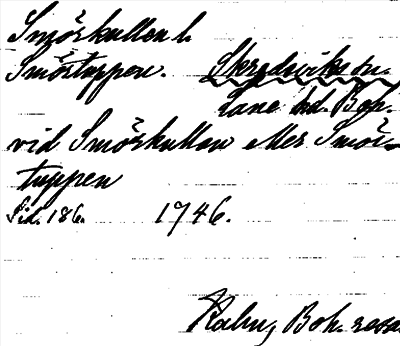 Smörkullen l.
Smörtuppen. Skredsviks sn.
Lane hd. Boh.
vid Smörkullen eller Smör-
tuppen
Sid. 186. 1746.
Kalm, Boh. resa